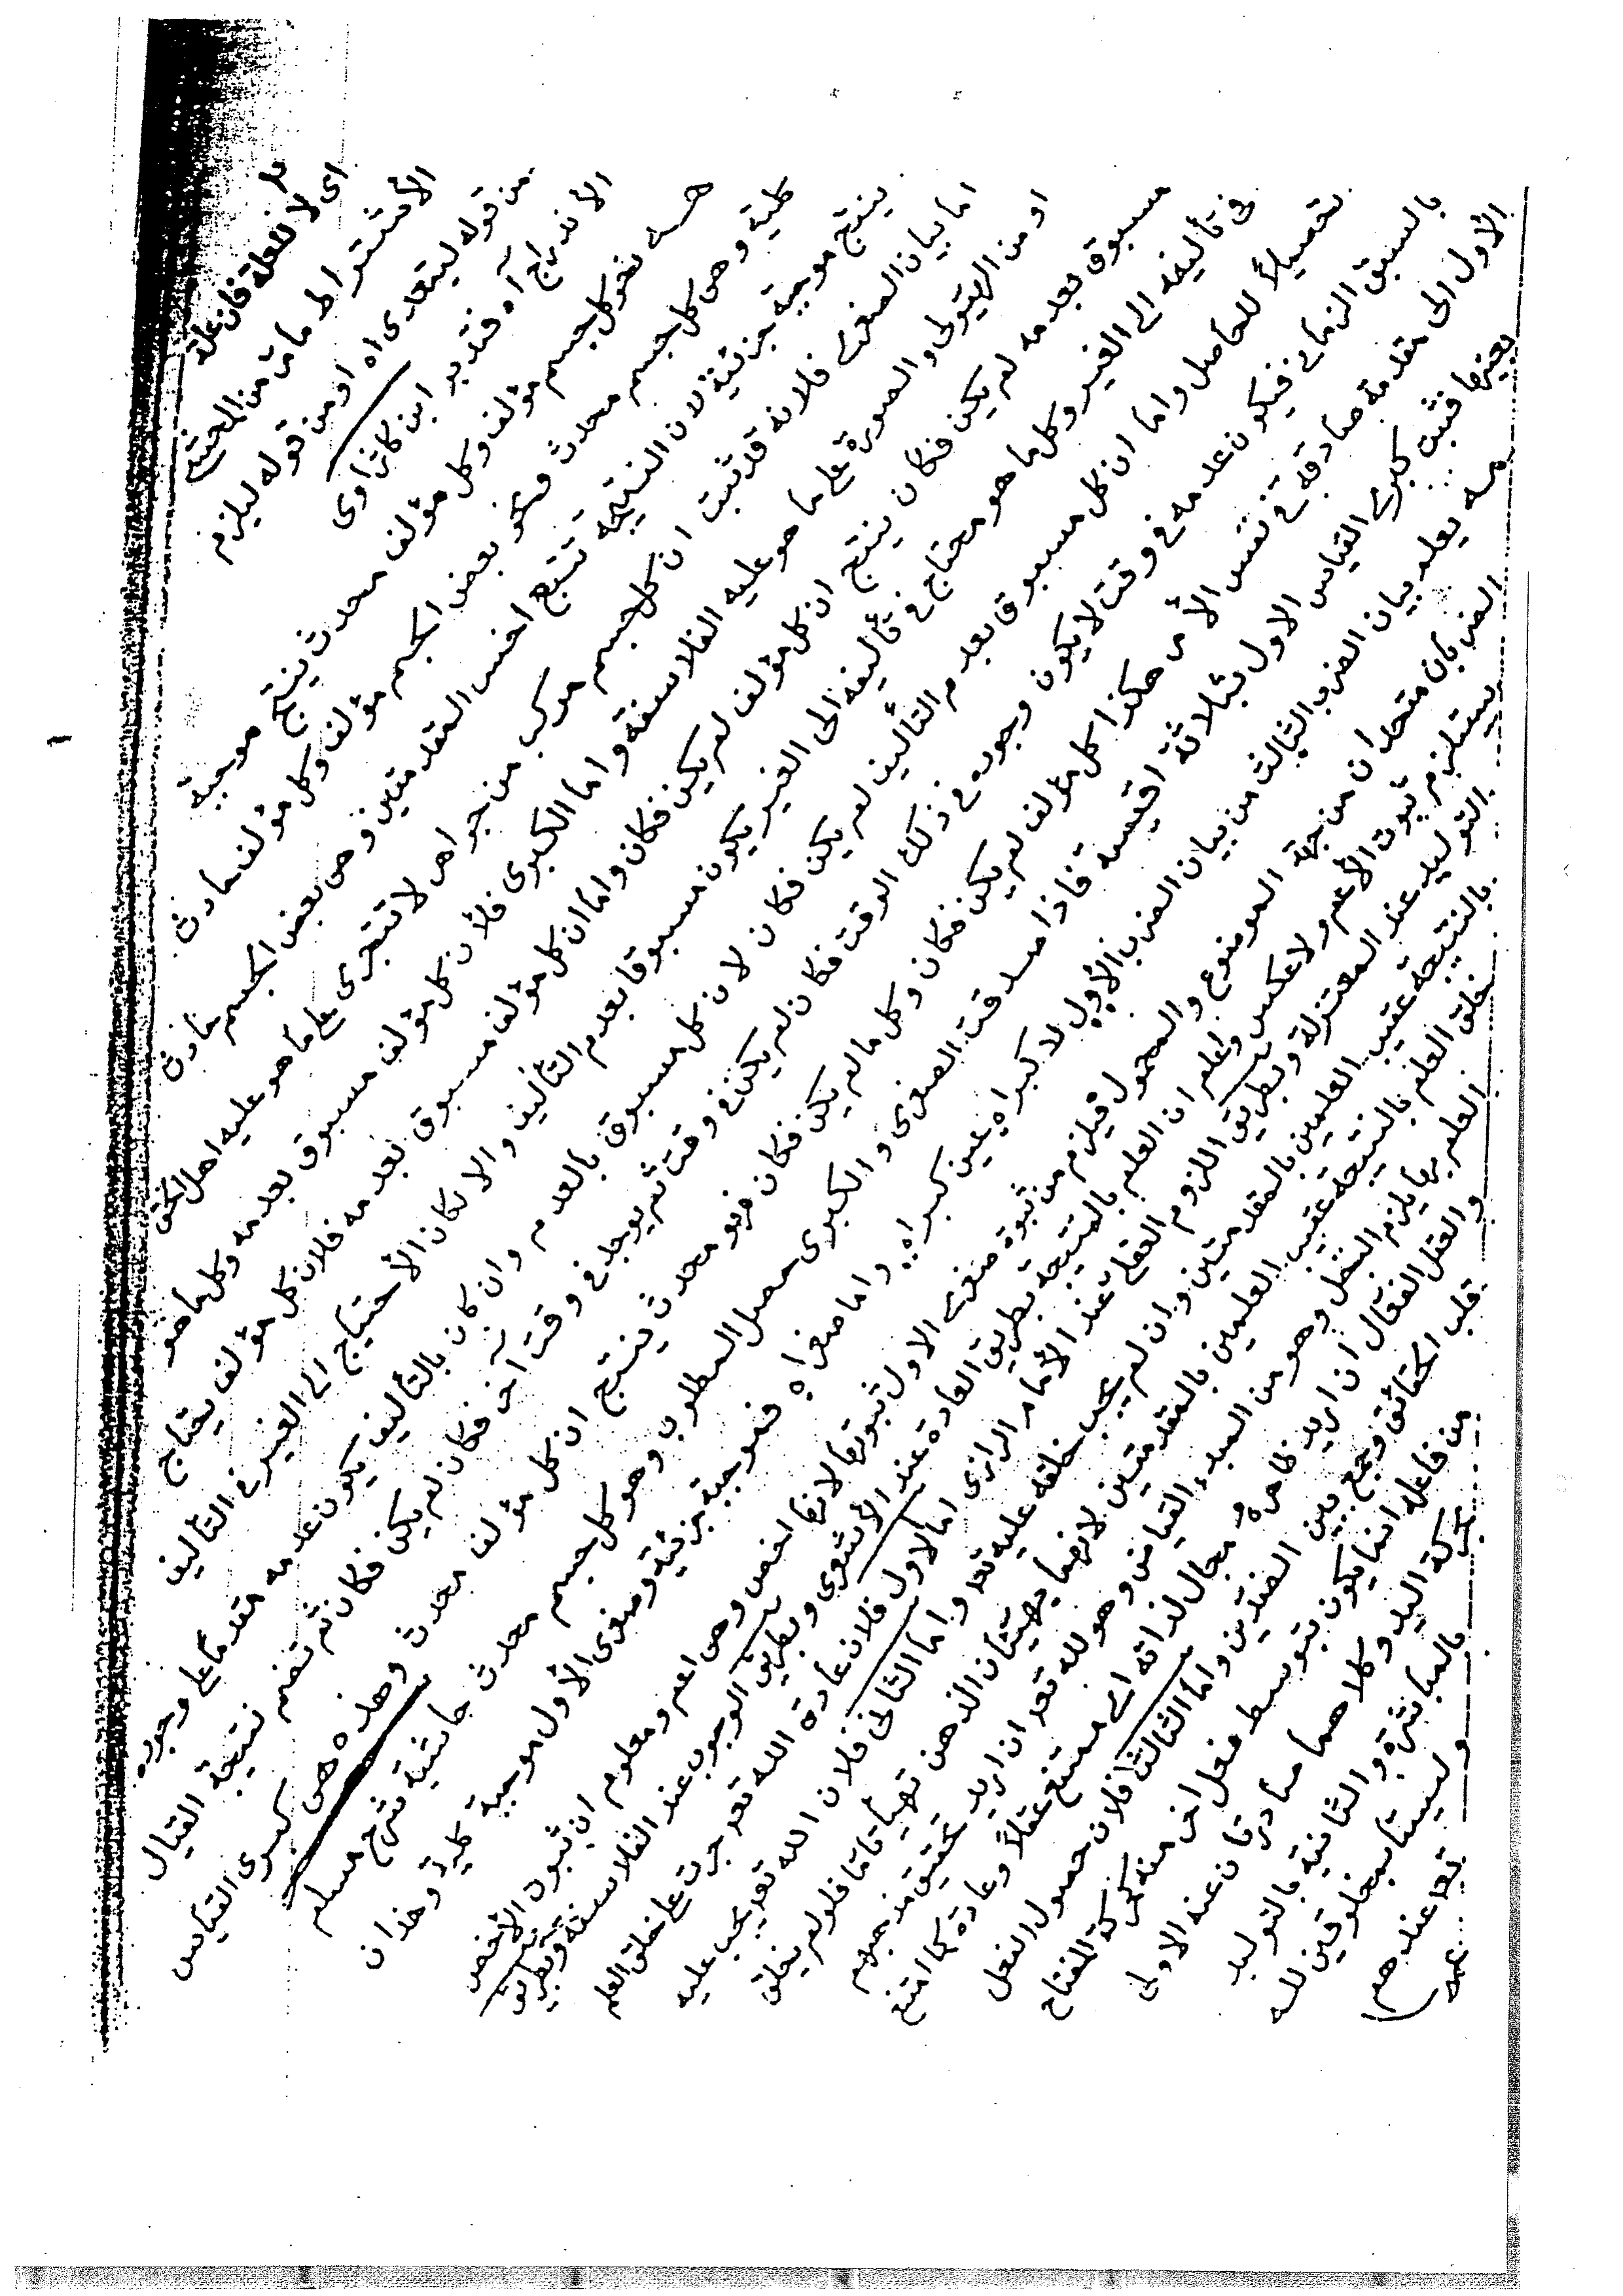 اى لا للعلة فان علة
الأشتراط مامر من المحشى
من قوله ليتعدى اه او من قوله ليلزم
الاندراج آه فتدبر ابن كانزاوى
نحو كل جسم مؤلف وكل مؤلف محدث ينتج موجبة
كلية وهى كل جسم محدث ونحو بعض الجسم مؤلف وكل مؤلف حادث
ينتج موجبة جزئية لان النتيجة تتبع اخس المقدمتين وهى بعض الجسم حادث
اما بيان الصغرى فلانه قد ثبت ان كل جسم مركب من جواهر لا تتجزى على ما هو عليه اهل الحق
او من الهيولى والصورة على ما هو عليه الفلاسفة واما الكبرى فلأن كل مؤلف مسبوق بعدمه وكل ما هو
مسبوق بعدمه لم يكن فكان ينتج ان كل مؤلف لم يكن فكان واما ان كل مؤلف مسبوق بعدمه فلان كل مؤلف يحتاج
فى تأليفه الى الغير وكل ما هو محتاج فى تأليفه الى الغير يكون مسبوقا بعدم التأليف والا لكان الأحتياج الى الغير فى التأليف
تحصيلاً للحاصل واما ان كل مسبوق بعدم التأليف لم يكن فكان لان كل مسبوق بالعدم وان كان بالتأليف يكون عدمه مقدما على وجوده
بالسبق الزمانى فيكون عدمه فى وقت لا يكون وجوده فى ذلك الوقت فكان لم يكن فى وقت ثم يوجد فى وقت آخر فكان لم يكن فكان ثم تضم نتيجة القياس
الأول الى مقدمة صادقة فى نفس الأمر هكذا كل مؤلف لم يكن فكان وكل ما لم يكن فكان فهو محدث ينتج ان كل مؤلف محدث وهذه هى كبرى القياس
بعينها فثبت كبرى القياس الاول بثلاثة اقيسة فاذا صدقت الصغرى والكبرى حصل المطلوب وهو كل جسم محدث حاشية شرح مسلم
يعلم بيان الضرب الثالث من بيان الضرب الأول لا كبراه عين كبراه واما صغراه فموجبة جزئية وصغرى الأول موجبة كلية وهذان
الضربان متحدان من جهة الموضوع والمحمول فيلزم من ثبوت صغرى الاول ثبوتها لانها اخص وهى اعم ومعلوم ان ثبوت الأخص
يستلزم ثبوت الأعم ولا عكس واعلم ان العلم بالنتيجة بطريق العادة عند الأشعرى وبطريق الوجوب عند الفلاسفة وبطريق
التوليد عند المعتزلة وبطريق اللزوم العقلى عند الأمام الرازى اما الاول فلان عادة الله تعد جرت على خلق العلم
بالنتيجة عقيب العلمين بالمقدمتين وان لم يجب خلقه عليه تعد واما الثانى فلان الله تعد يجب عليه
خلق العلم بالنتيجة عقيب العلمين بالمقدمتين لانهما يهيئان الذهن تهيأ تاما فلو لم يخلق
العلم بها يلزم البخل وهو من المبدء الفياض وهو لله تعد ان اريد تحقيق مذهبهم
والعقل الفعال ان اريد ظاهره محال لذاته اى ممتنع عقلاً وعادة كما امتنع
قلب الحقائق وجمع بين الضدين واما الثالث فلان حصول الفعل
من فاعله انما يكون بتوسط فعل اخر منه كحركة المفتاح
بحركة اليد وكلاهما صادرتان عند الاولى
بالمباشرة والثانية بالتوليد
وليستا بمخلوقين لله
تعا عندهم